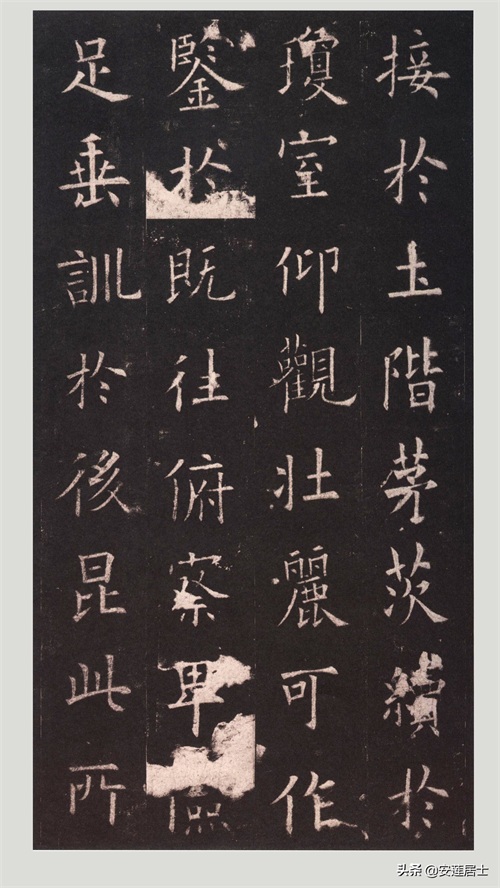 接於土階茅茨續於
瓊室仰觀壯麗可作
鑒於既往俯察卑儉
足垂訓於後昆此所
头条 @安蓮居士